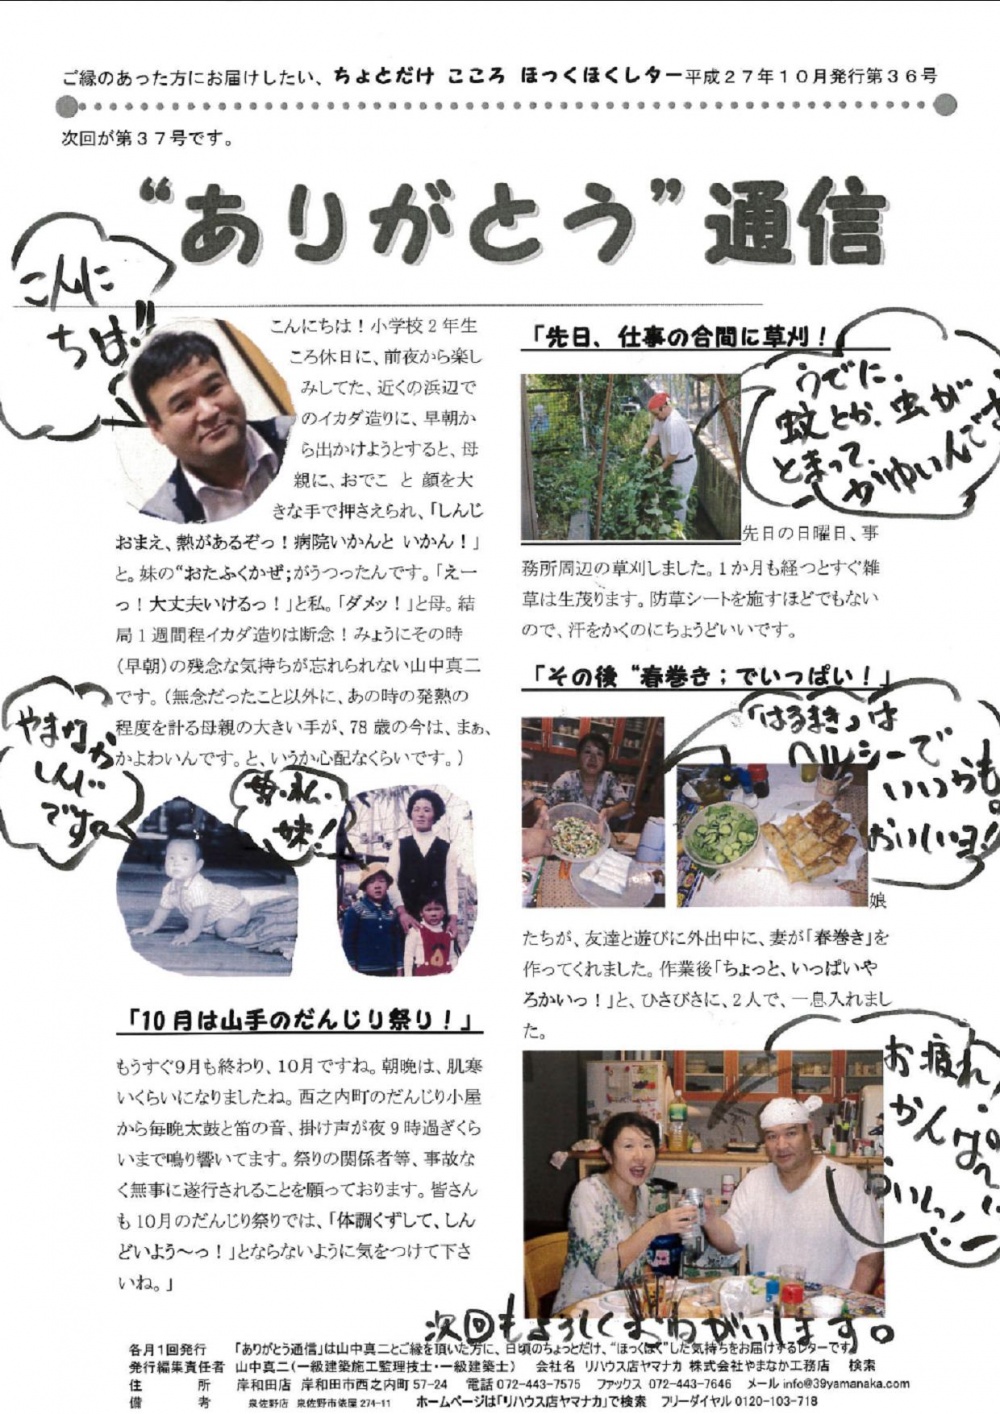 ご縁のあった方にお届けしたい、ちょとだけ こころ ほっくほくレター平成27年10月発行第36号
次回が第37号です。
“ありがとう”通信
こんに
ちは!!
こんにちは！小学校2年生
ころ休日に、前夜から楽し
みしてた、近くの浜辺で
のイカダ造りに、早朝か
ら出かけようとすると、母
親に、おでこ と 顔を大
きな手で押さえられ、「しんじ
おまえ、熱があるぞっ！病院いかんと いかん！」
と。妹の“おたふくかぜ；がうつったんです。「えー
っ！大丈夫いけるっ！」と私。「ダメッ！」と母。結
局1週間程イカダ造りは断念！みょうにその時
（早朝）の残念な気持ちが忘れられない山中真二
です。（無念だったこと以外に、あの時の発熱の
程度を計る母親の大きい手が、78歳の今は、まぁ、
かよわいんです。と、いうか心配なくらいです。）
やまなか
しんじ
です。
母・私・
妹！
「10月は山手のだんじり祭り！」
もうすぐ9月も終わり、10月ですね。朝晩は、肌寒
いくらいになりましたね。西之内町のだんじり小屋
から毎晩太鼓と笛の音、掛け声が夜9時過ぎくら
いまで鳴り響いてます。祭りの関係者等、事故な
く無事に遂行されることを願っております。皆さん
も10月のだんじり祭りでは、「体調くずして、しん
どいよう～っ！」とならないように気をつけて下さ
いね。」
「先日、仕事の合間に草刈！
うでに、
蚊とか、虫が
とまって、
かゆいんです
先日の日曜日、事
務所周辺の草刈しました。1か月も経つとすぐ雑
草は生茂ります。防草シートを施すほどでもない
ので、汗をかくのにちょうどいいです。
「その後 “春巻き；でいっぱい！」
「はるまき」は
ヘルシーで
いくつも
おいしいヨ！
娘
たちが、友達と遊びに外出中に、妻が「春巻き」を
作ってくれました。作業後「ちょっと、いっぱいや
ろかいっ！」と、ひさびさに、2人で、一息入れまし
た。
お疲れ！
かんぱーい
おいしっ！
次回もよろしくおねがいします。
各月1回発行 「ありがとう通信」は山中真二とご縁を頂いた方に、日頃のちょっとだけ、“ほっくほく”した気持ちをお届けするレターです。
発行編集責任者 山中真二（一級建築施工監理技士・一級建築士） 会社名 リハウス店ヤマナカ 株式会社やまなか工務店 検索
住 所 岸和田店 岸和田市西之内町57-24 電話072-443-7575 ファックス 072-443-7646 メール info@39yamanaka.com
備 考 泉佐野店 泉佐野市俵屋274-11 ホームページは「リハウス店ヤマナカ」で検索 フリーダイヤル 0120-103-718